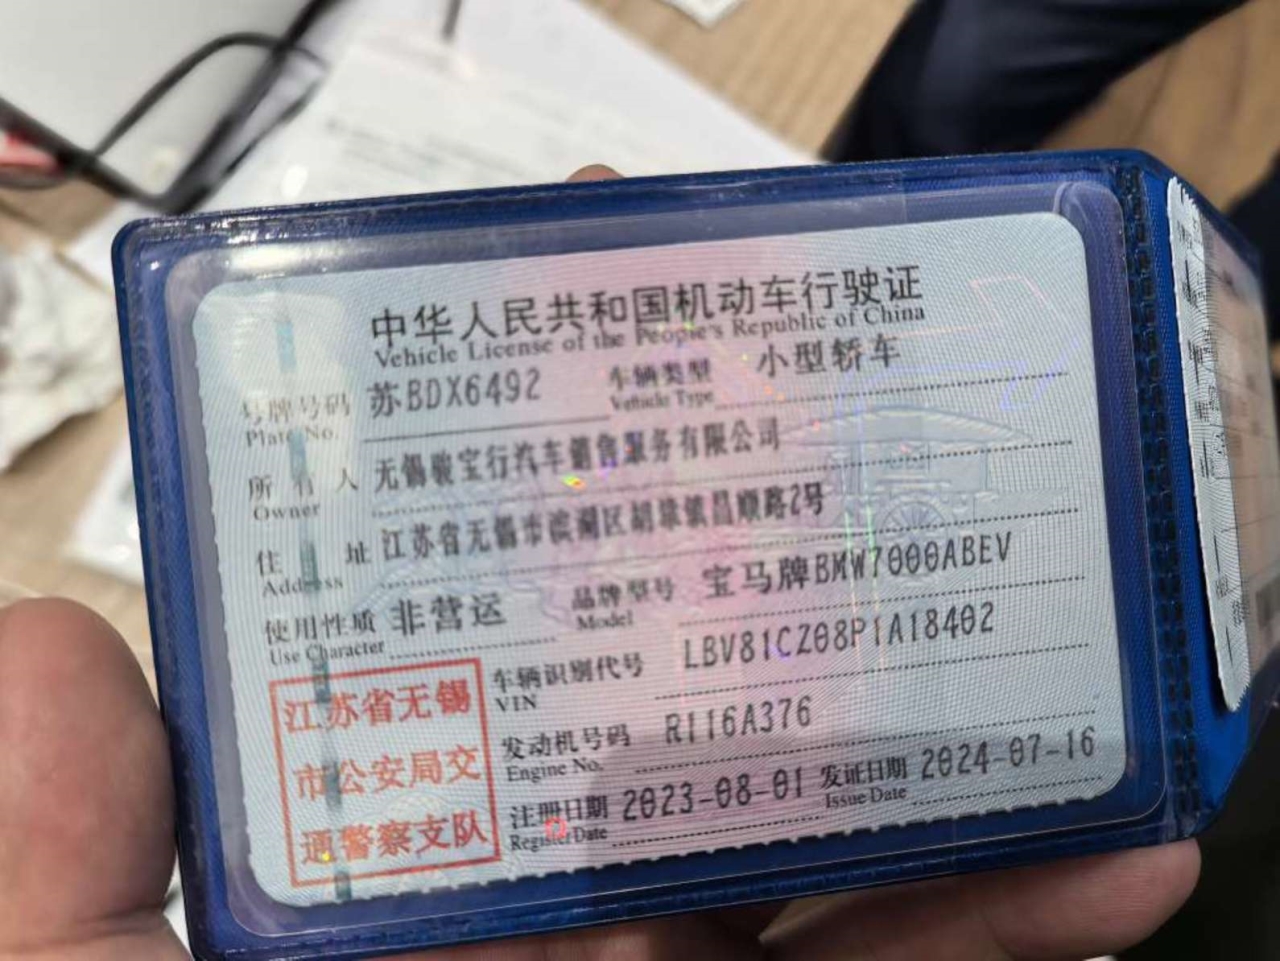 中华人民共和国机动车行驶证
Vehicle License of the People's Republic of China
号牌号码 苏BDX6492 车辆类型 小型轿车
Plate No. Vehicle Type
所有人 无锡骏宝行汽车销售服务有限公司
Owner
住址 江苏省无锡市滨湖区胡埭镇昌顺路2号
Address
使用性质 非营运 品牌型号 宝马牌BMW7000ABEV
Use Character Model
车辆识别代号 LBV81CZ08P1A18402
VIN
发动机号码 R116A376
Engine No.
注册日期 2023-08-01 发证日期 2024-07-16
Register Date Issue Date
江苏省无锡
市公安局交
通警察支队